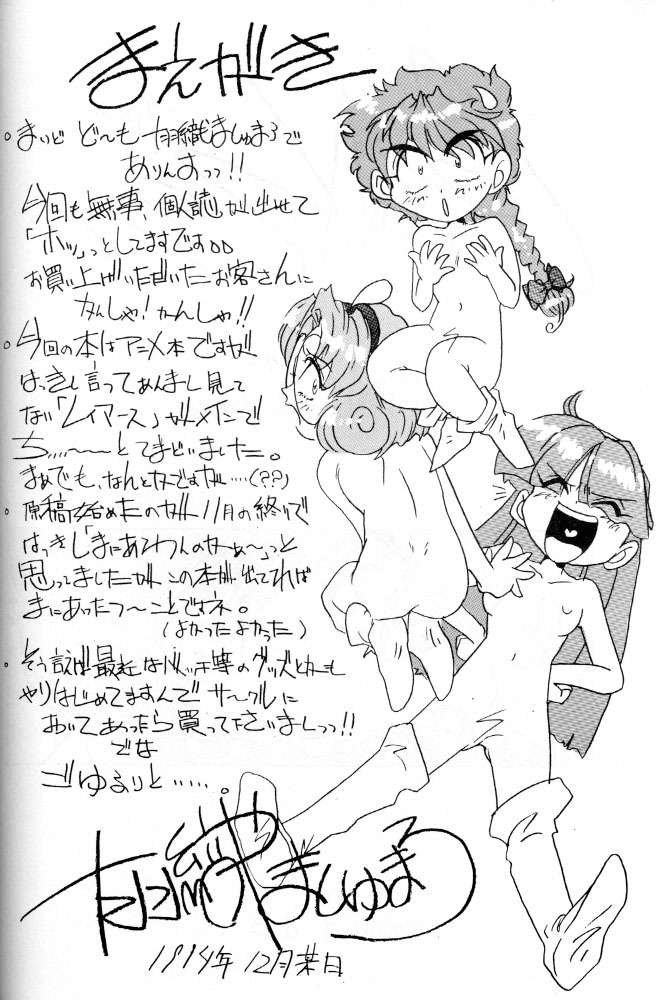 まえがき
・まいど ど〜も 有羽織ましゅまろで
ありんすっっ!!
今回も無事、個人誌が出せて
「ホッ」っとしてますですぅぅ
お買い上げいただいたお客さんに
かんしゃ!かんしゃ!!
・今回の本はアニメ本ですが
はっきし言ってあんまし見て
ない「レイアース」がメインで
ち....〜〜とてまどいました。
まぁでも、なんとかですが....(??)
・原稿始めたのが11月の終りで
はっきし「まにあわんのかぁ〜」っと
思ってましたが この本が出てれば
まにあったつ〜ことですネ。
(よかったよかった)
・そう言えば最近はバッチ等のグッズとかも
やりはじめてますんで サークルに
おいてあったら買って下さいましっっ!!
でな
ごゆるりと.....。
ましゅまろ
1994年 12月某日